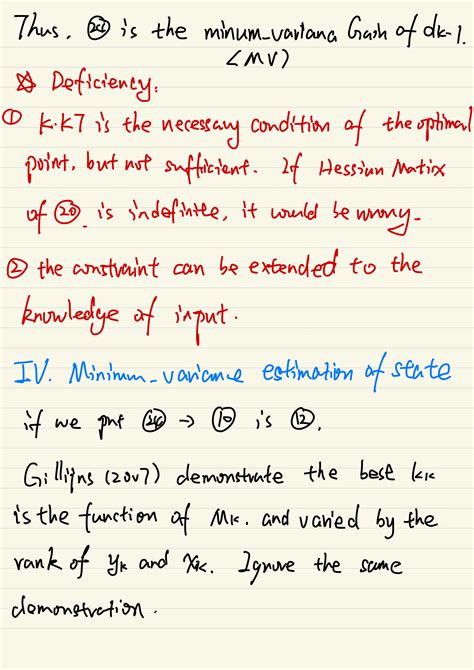 Thus, ㉖ is the minum_variana Gain of dk-1.
(MV)
☆ Deficiency.
① K.K7 is the necessary condition of the optimal
point, but not sufficient. If Hessian Matix
of ⑳ is indefinite, it would be wrong.
② the constraint can be extended to the
knowledge of input.
IV. Minimum_variance estimation of state
if we put → ⑩ is ⑫.
Gillijns (2007) demonstrate the best kk
is the function of Mk. and varied by the
rank of yk and Ignore the same
demonstration.